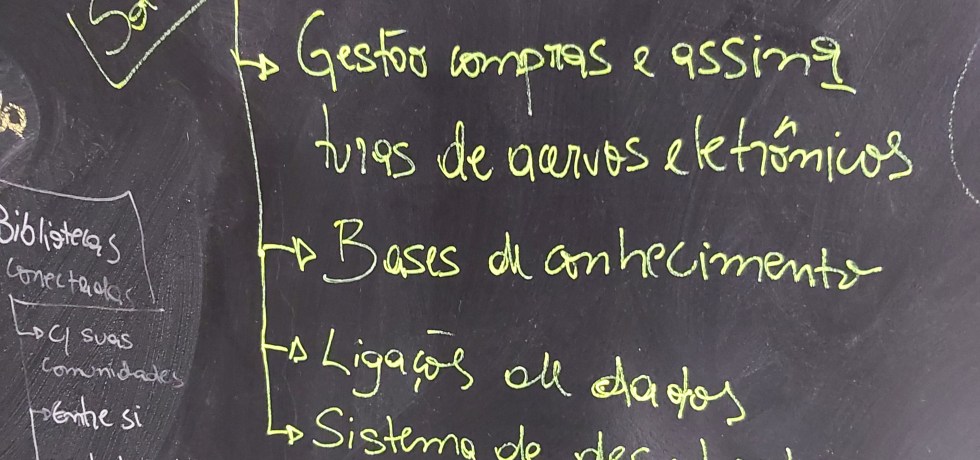 Gestão compras e assina
turas de acervos eletrônicos
Bases de conhecimento
Ligações de dados
Sistema de
Bibliotecas
conectadas
C/ suas
comunidades
Entre si